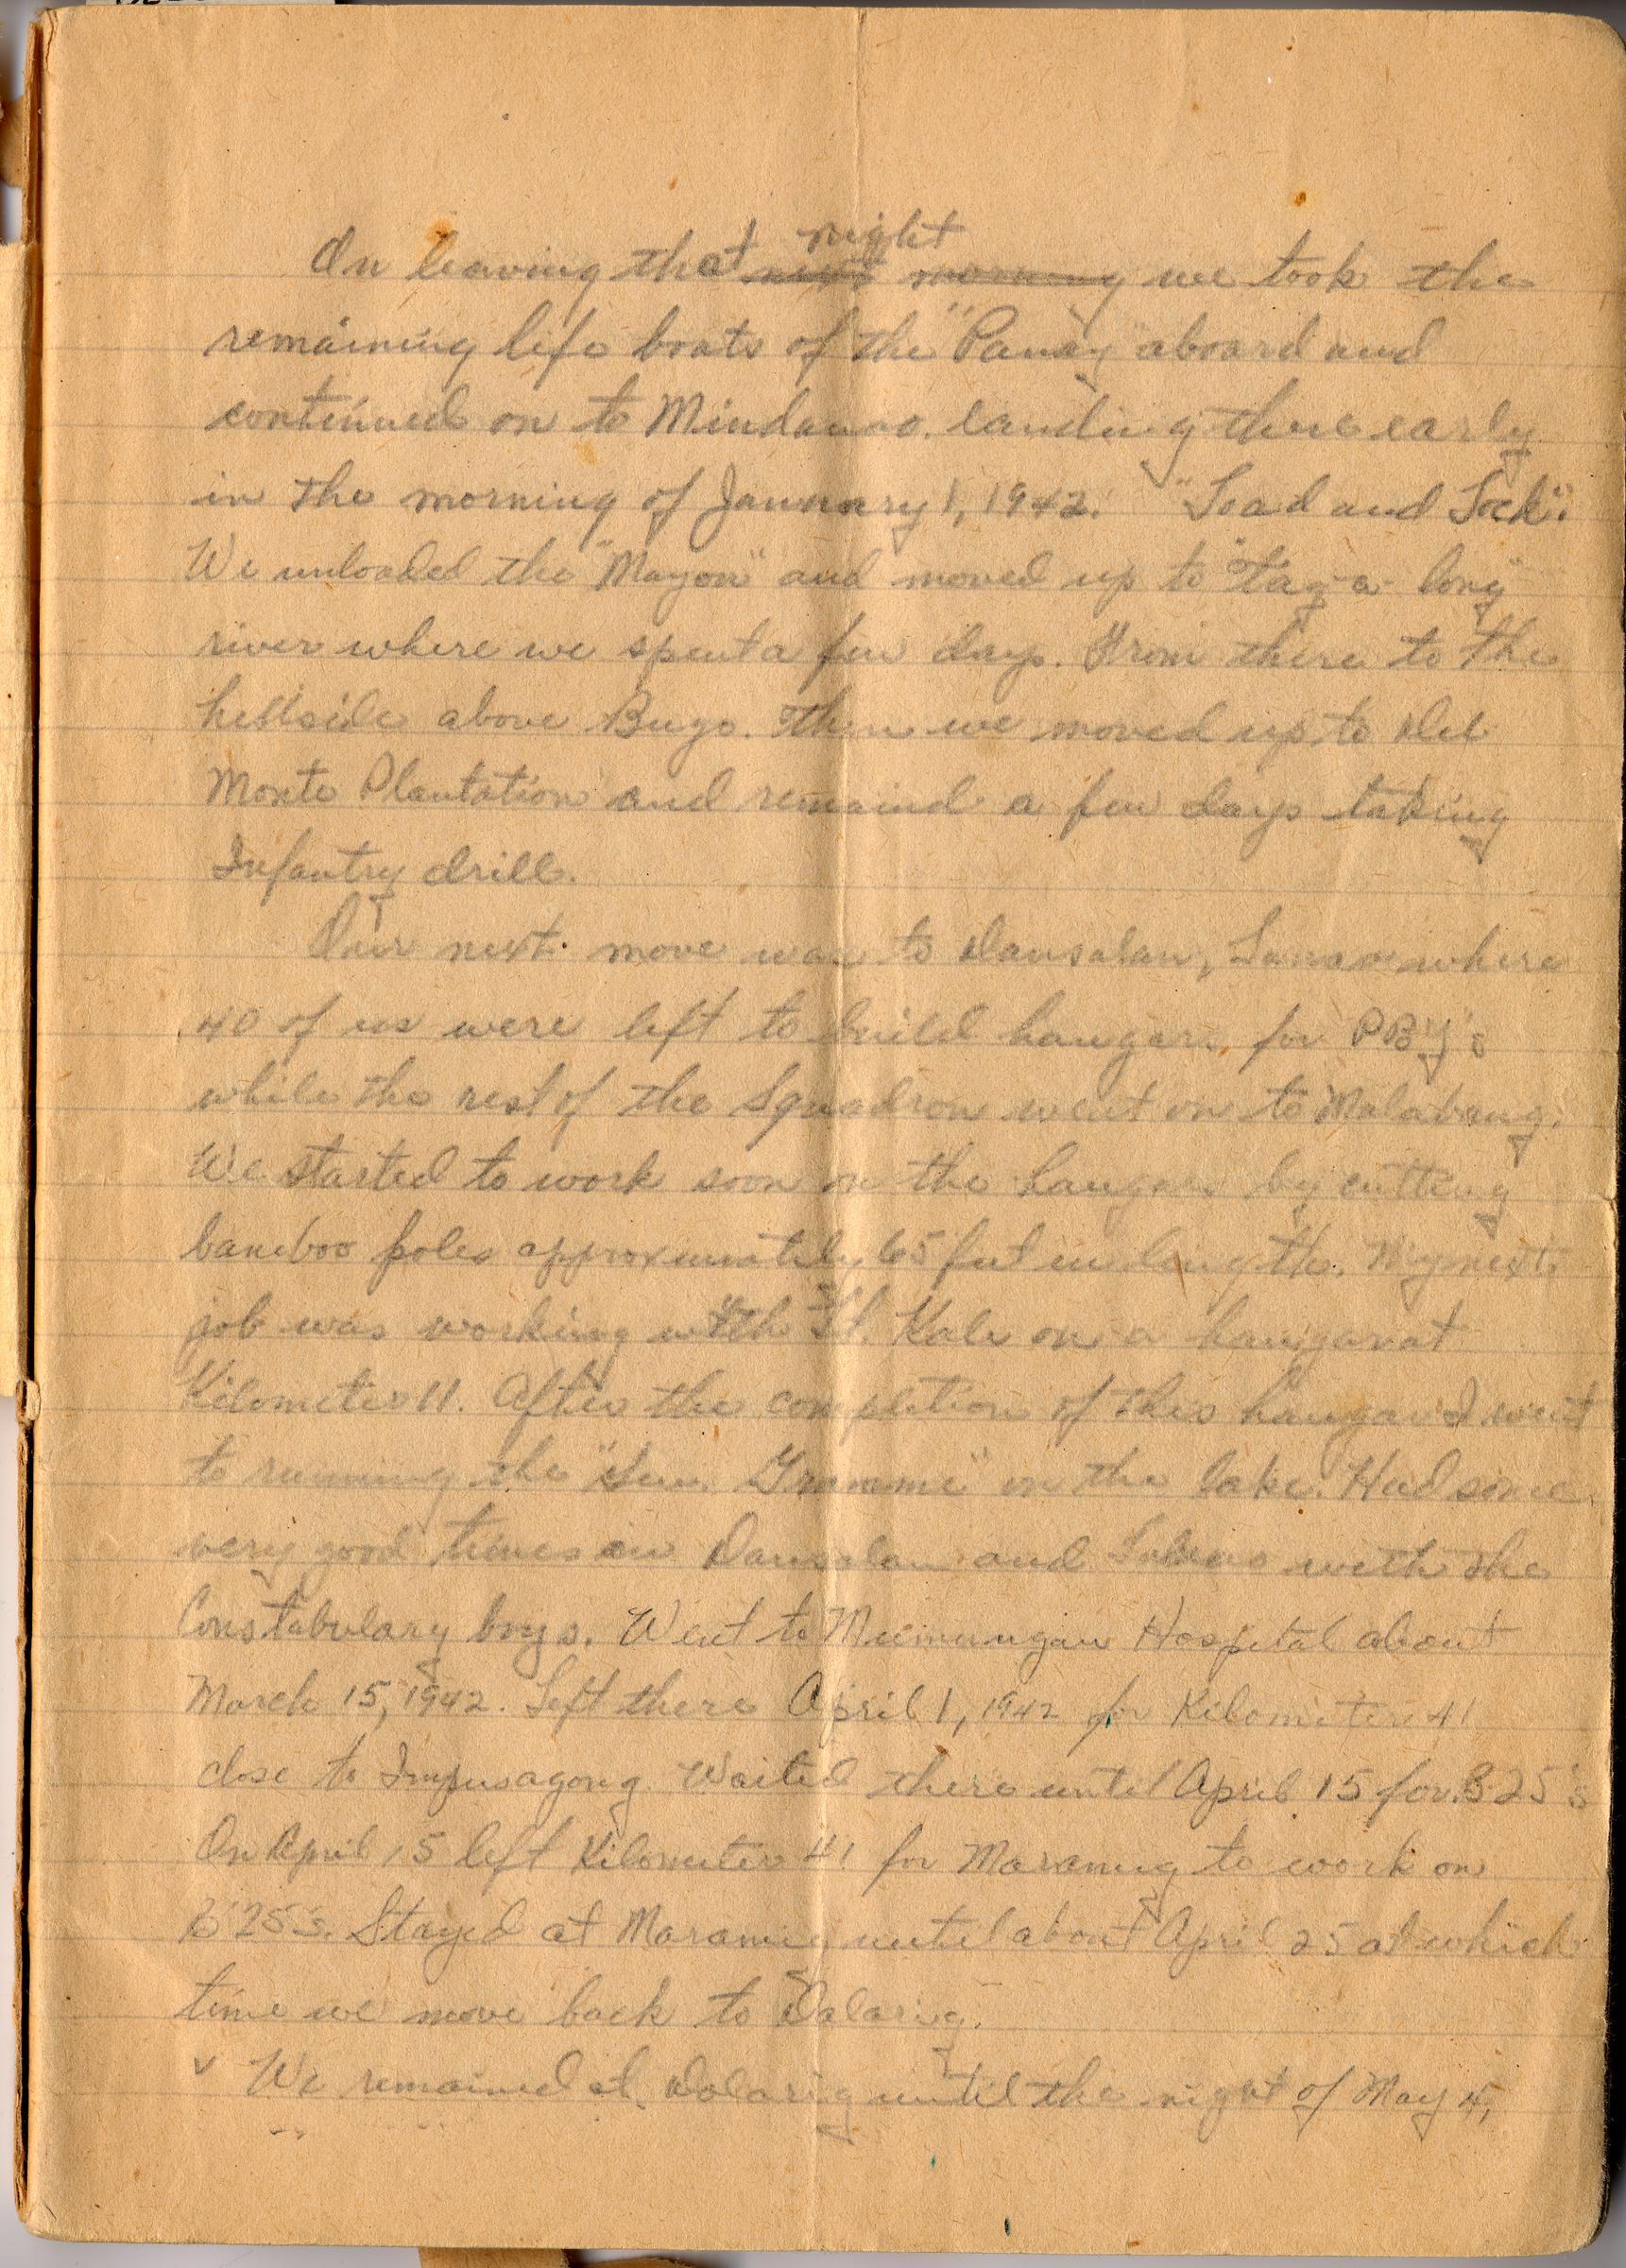 On leaving that next morning night we took the
remaining life boats of the "Panay" aboard and
continued on to Mindanao. landing there early
in the morning of January 1, 1942. "Load and Lock".
We unloaded the "Mayon" and moved up to "tag-a-long"
river where we spent a few days. From there to the
hillside above Bugo. Then we moved up to Del
Monte Plantation and remaind a few days taking
Infantry drill.
Our next move was to Dansalan, Lanao where
40 of us were left to build hangars for PBY's
while the rest of the Squadron went on to Malabang.
We started to work soon on the hangars by cutting
bamboo poles approximately 65 feet in length. My next
job was working with Lt. Kale on a hangar at
Kilometer 11. After the completion of this hangar I went
to running the on the lake. Had some
very good times in Dansalan and with the
Constabulary boys. Went to Mumungan Hospital about
March 15, 1942. Left there April 1, 1942 for Kilometer 41
close to Impusagong. Waited there until April 15 for B25's
On April 15 left Kilometer 41 for Maramug to work on
B'25's. Stayed at Maramug until about April 25 at which
time we move back to Dalarig.
v We remained at Dalarig until the night of May 4,